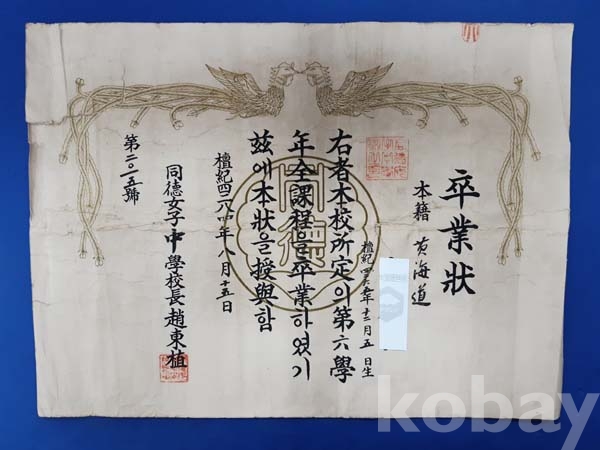 卒業狀
本籍 黃海道
檀紀 年 十二月 五 日生
右者本校所定의第六學
年全課程을卒業하였기
玆에本狀을授與함
檀紀四二八四年八月十五日
同德女子中學校長趙東植
第二〇一五號
同德
kobay